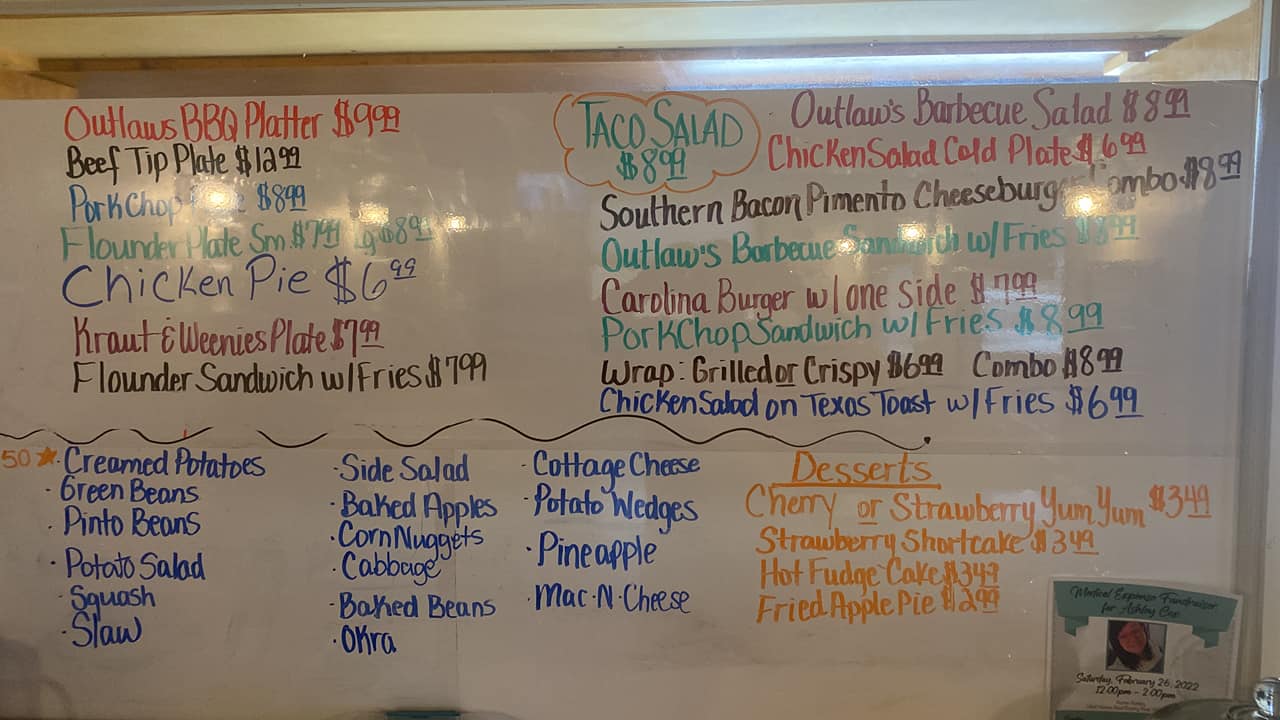 Outlaws BBQ Platter $9.99
Beef Tip Plate $12.99
Pork Chop $8.99
Flounder Plate Sm. $7.99 Lg $8.99
Chicken Pie $6.99
Kraut & Weenies Plate $7.99
Flounder Sandwich w/Fries $7.99
TACO SALAD
$8.99
Outlaw's Barbecue Salad $8.99
Chicken Salad Cold Plate $6.99
Southern Bacon Pimento Cheeseburger Combo $8.99
Outlaw's Barbecue Sandwich w/Fries $8.99
Carolina Burger w/one side $7.99
Pork Chop Sandwich w/Fries $8.99
Wrap: Grilled or Crispy $6.99 Combo $8.99
Chicken Salad on Texas Toast w/Fries $6.99
50 · Creamed Potatoes
· Green Beans
· Pinto Beans
· Potato Salad
· Squash
· Slaw
· Side Salad
· Baked Apples
· Corn Nuggets
· Cabbage
· Baked Beans
· Okra
· Cottage Cheese
· Potato Wedges
· Pineapple
· Mac·N·Cheese
Desserts
Cherry or Strawberry Yum Yum $3.49
Strawberry Shortcake $3.49
Hot Fudge Cake $3.49
Fried Apple Pie $2.99
Medical Expense Fundraiser
for Ashley
Saturday, February 26, 2022
12:00pm - 2:00pm